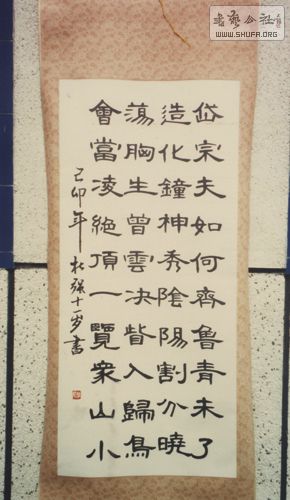 書藝公社
WWW.SHUFA.ORG
岱宗夫如何齊魯青未了
造化鐘神秀陰陽割分曉
蕩胸生曾雲决眥入歸鳥
會當凌絕頂一覽衆山小
己卯年杜强十一岁書